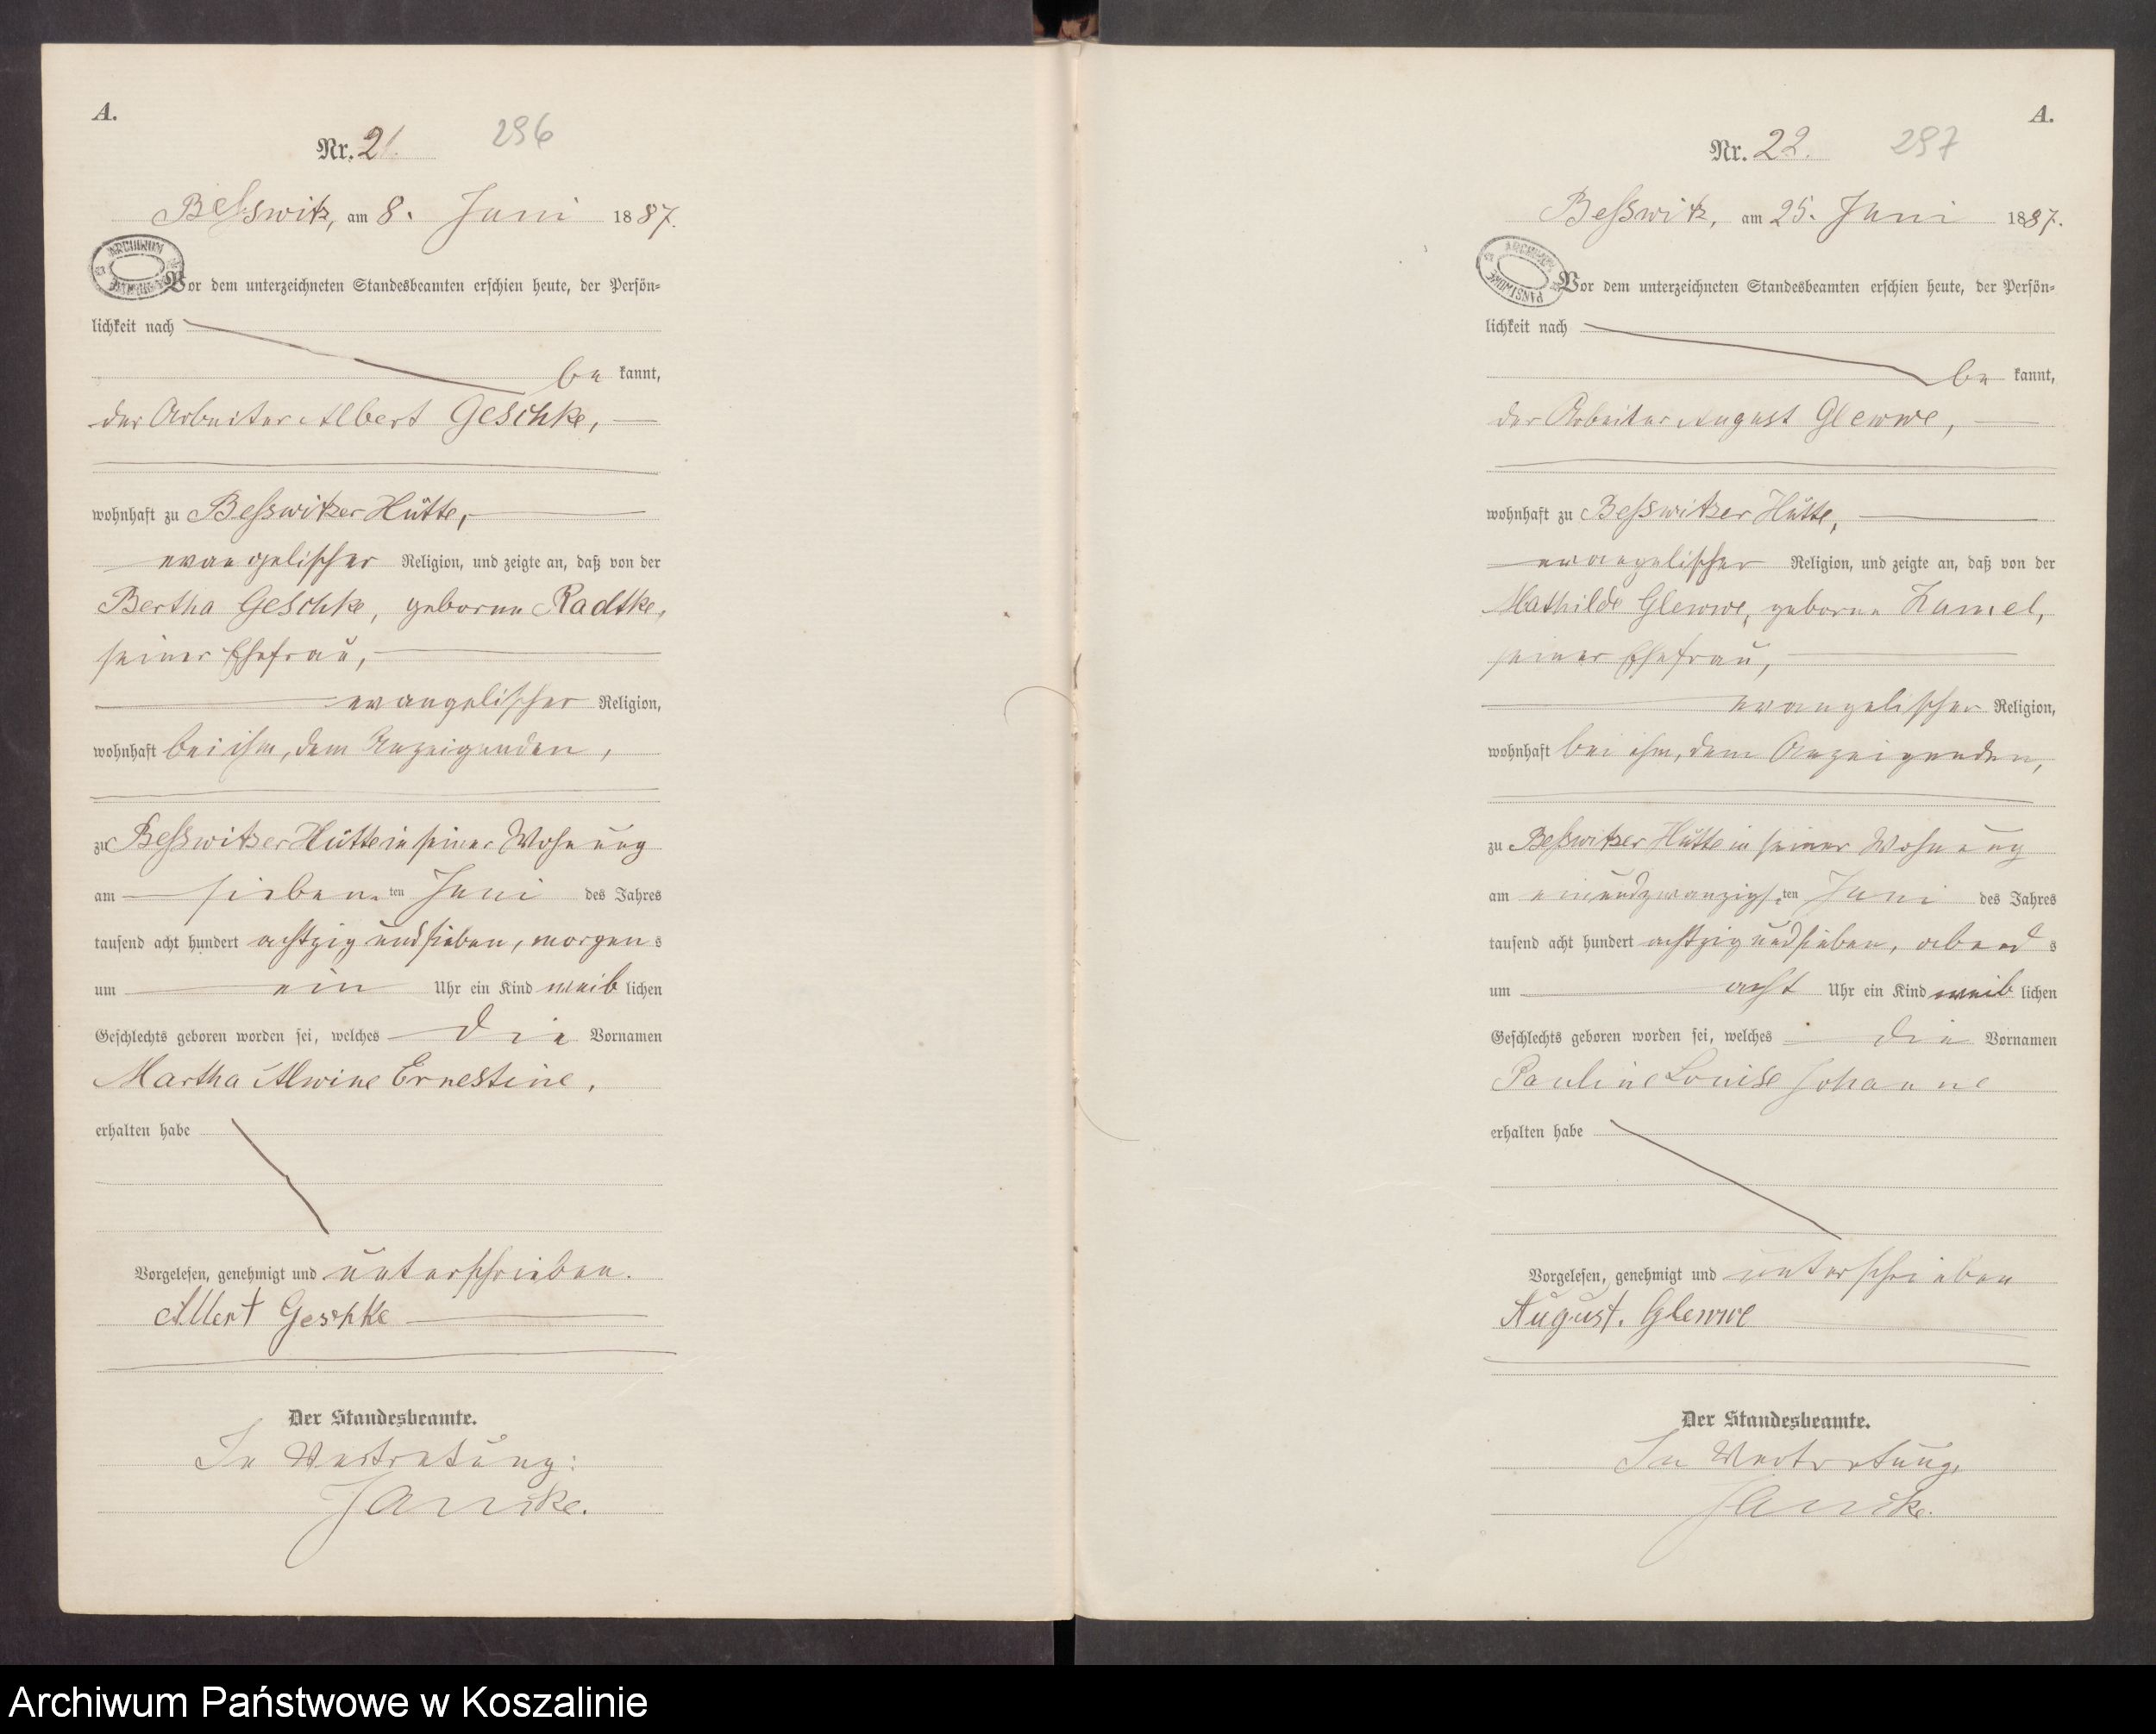 A.
Nr. 21. 296
Beſswitz, am 8. Juni 1887.
Vor dem unterzeichneten Standesbeamten erſchien heute, der Perſön-
lichkeit nach
be kannt,
der Arbeiter Albert Geschke,
wohnhaft zu Beſswitzer Hütte,
evangeliſcher Religion, und zeigte an, daß von der
Bertha Geschke, geborne Radtke,
ſeiner Ehefrau,
evangeliſcher Religion,
wohnhaft bei ihm, dem Anzeigenden,
zu Beſswitzer Hütte in ſeiner Wohnung
am ſieben ten Juni des Jahres
tauſend acht hundert achtzig und ſieben, morgen s
um ein Uhr ein Kind weib lichen
Geſchlechts geboren worden ſei, welches die Vornamen
Martha Alwine Ernestine,
erhalten habe
Vorgeleſen, genehmigt und unterſchrieben.
Albert Geschke
Der Standesbeamte.
In Vertretung:
Jancke.
A.
Nr. 22. 297
Beſswitz, am 25. Juni 1887.
Vor dem unterzeichneten Standesbeamten erſchien heute, der Perſön-
lichkeit nach
be kannt,
der Arbeiter August Glewwe,
wohnhaft zu Beſswitzer Hütte,
evangeliſcher Religion, und zeigte an, daß von der
Mathilde Glewwe, geborne Kamel,
ſeiner Ehefrau,
evangeliſcher Religion,
wohnhaft bei ihm, dem Anzeigenden,
zu Beſswitzer Hütte in ſeiner Wohnung
am einundzwanzigſ ten Juni des Jahres
tauſend acht hundert achtzig und ſieben, abend s
um acht Uhr ein Kind weib lichen
Geſchlechts geboren worden ſei, welches die Vornamen
Pauline Louise Johanne
erhalten habe
Vorgeleſen, genehmigt und unterſchrieben
August. Glewwe
Der Standesbeamte.
In Vertretung,
Jancke.
Archiwum Państwowe w Koszalinie